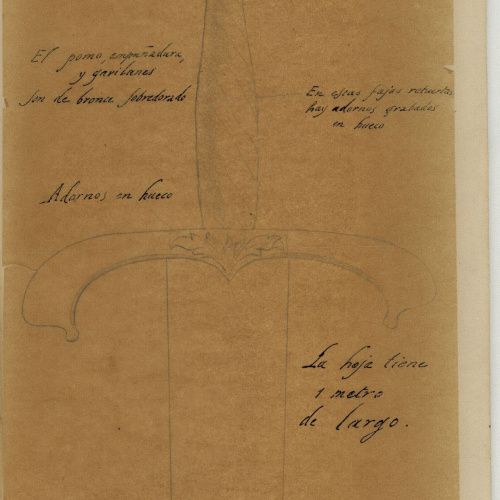 El pomo, empuñadura,
y gavilanes
son de bronce sobredorado
En estas fajas retuertas
hay adornos grabados
en hueco
Adornos en hueco
La hoja tiene
1 metro
de largo.